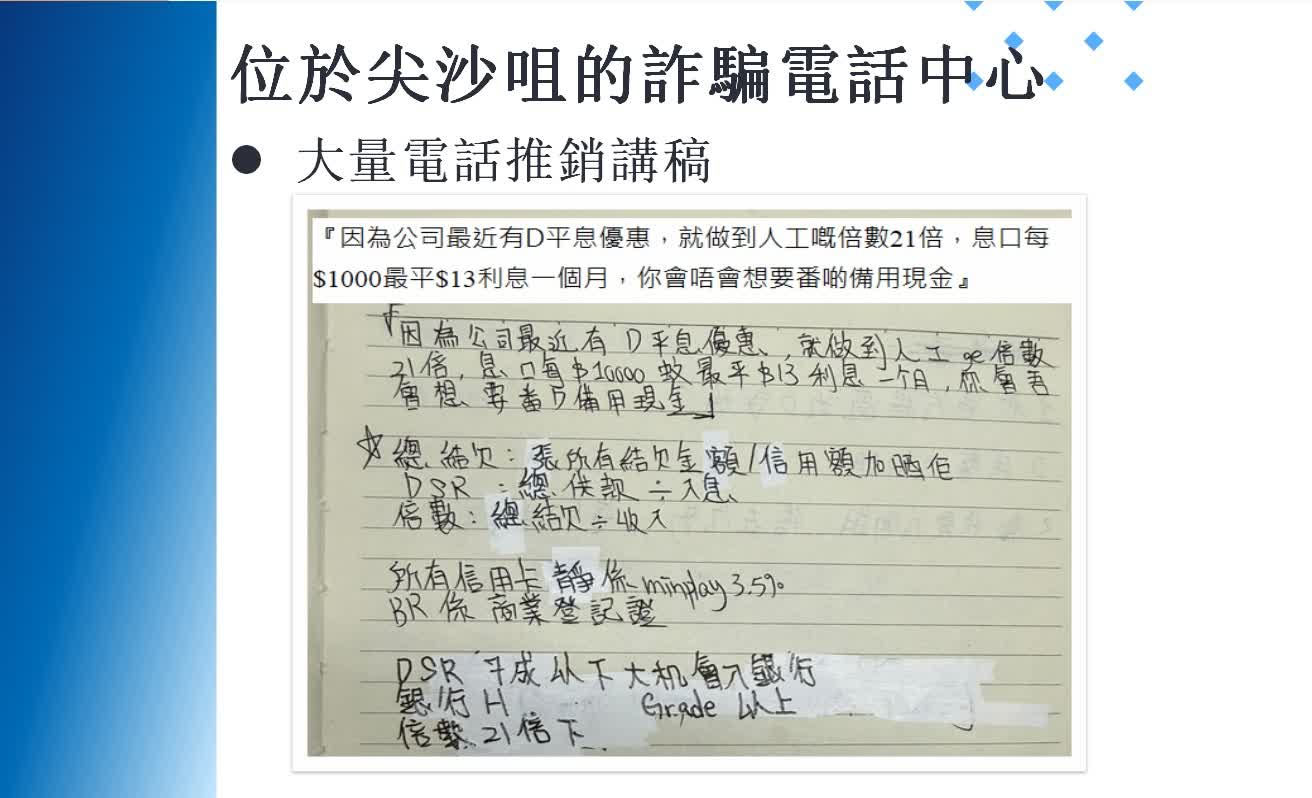 位於尖沙咀的詐騙電話中心
大量電話推銷講稿
『因為公司最近有D平息優惠，就做到人工嘅倍數21倍，息口每
$1000最平$13利息一個月，你會唔會想要番啲備用現金』
「因為公司最近有D平息優惠，就做到人工ge倍數
21倍，息口每$10000蚊最平$13利息一个月，你會吾
會想要番D備用現金」
☆總結欠：張所有結欠金額/信用額加晒佢
DSR：總供款÷入息
倍數：總結欠÷收入
所有信用卡靜係minplay 3.5%
BR係商業登記證
DSR 以下大机會入銀行
銀行H Grade以上
倍數21倍下